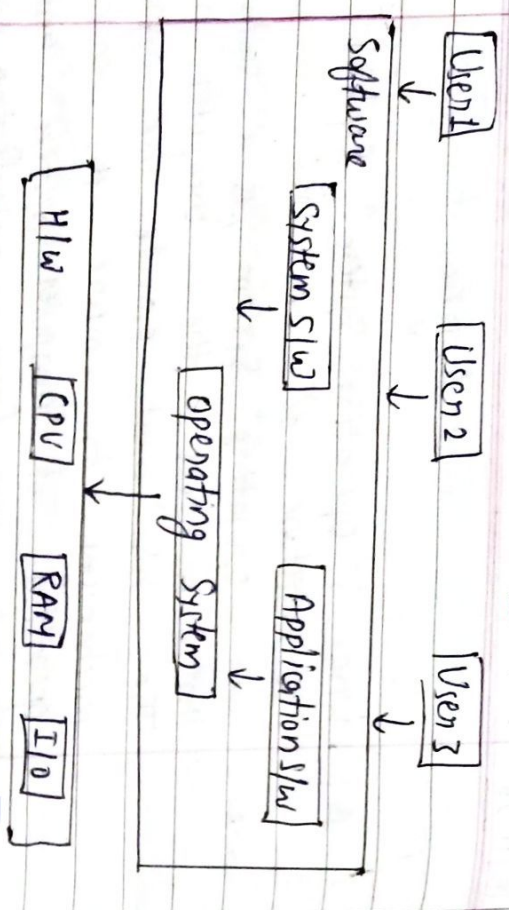 User1 User 2 User 3
Software
System S/W Application S/W
Operating System
H/W CPU RAM I/O